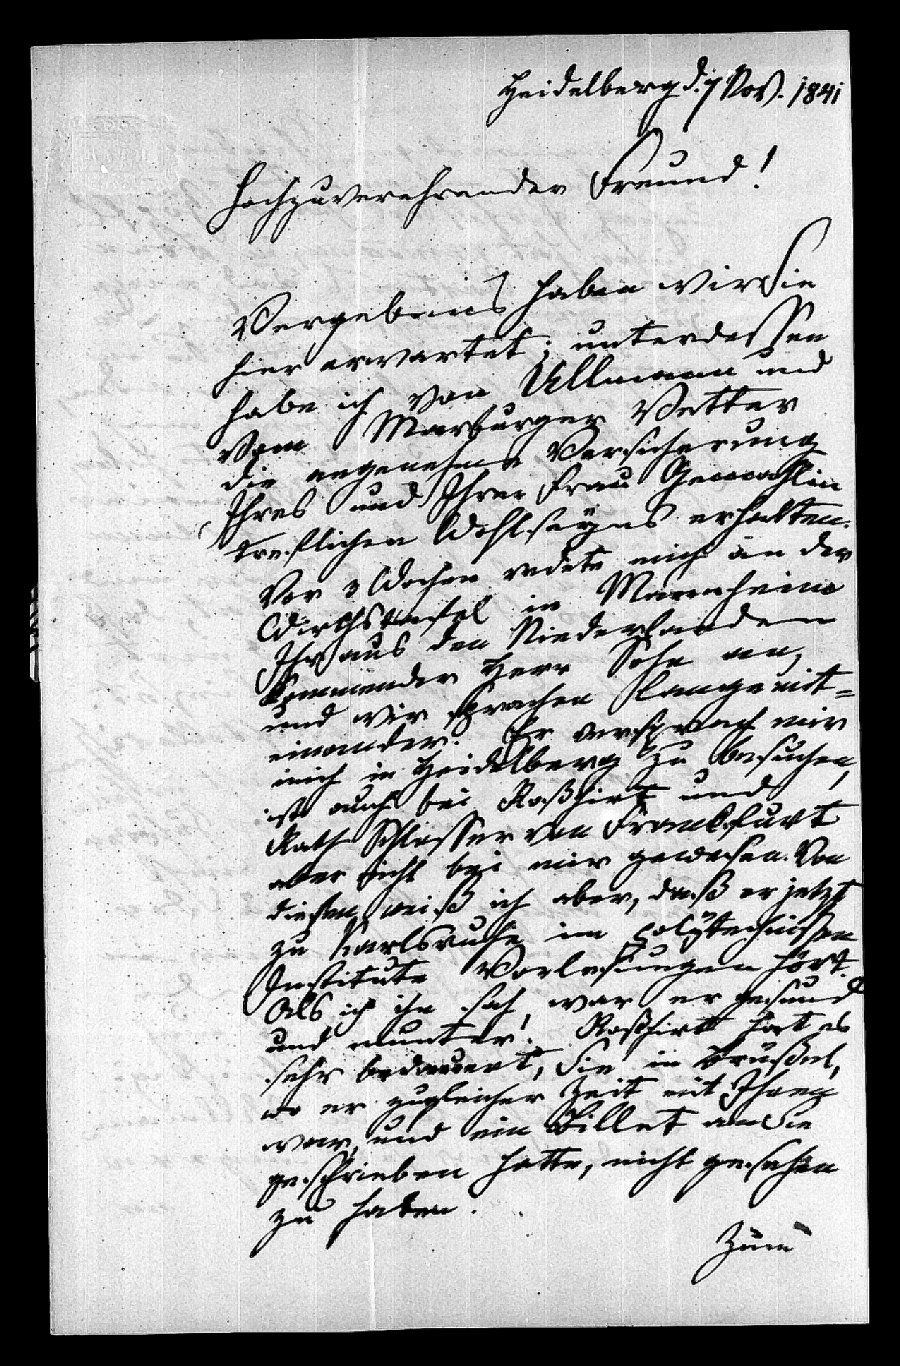 Heidelberg d. 7 Nov. 1841
Hochzuverehrender Freund!
Vergebens haben wir Sie
hier erwartet; unterdessen
habe ich von Ullmann und
vom Marburger Vetter
die angenehme Versicherung
Ihres und Ihrer Frau Gemahlin
trefflichen Wohlseyns erhalten.
Vor 3 Wochen redete mich an der
Wirthstafel in Mannheim
Ihr aus den Niederlanden
kommender Herr Sohn an,
und wir sprachen lange mit=
einander. Er versprach mir
mich in Heidelberg zu besuchen,
ist auch bei Roßhirt und
Rath Schlosser von Frankfurt
aber nicht bei mir gewesen. Von
diesen weiß ich aber, daß er jetzt
zu Karlsruhe im polytechnischen
Institute Vorlesungen hört.
Als ich ihn sah, war er gesund
und munter. Roßhirt hat es
sehr bedauert, Sie in Brüßel,
wo er zugleicher Zeit mit Ihnen
war, und ein Billet an Sie
geschrieben hatte, nicht gesehen
zu haben.
Zum